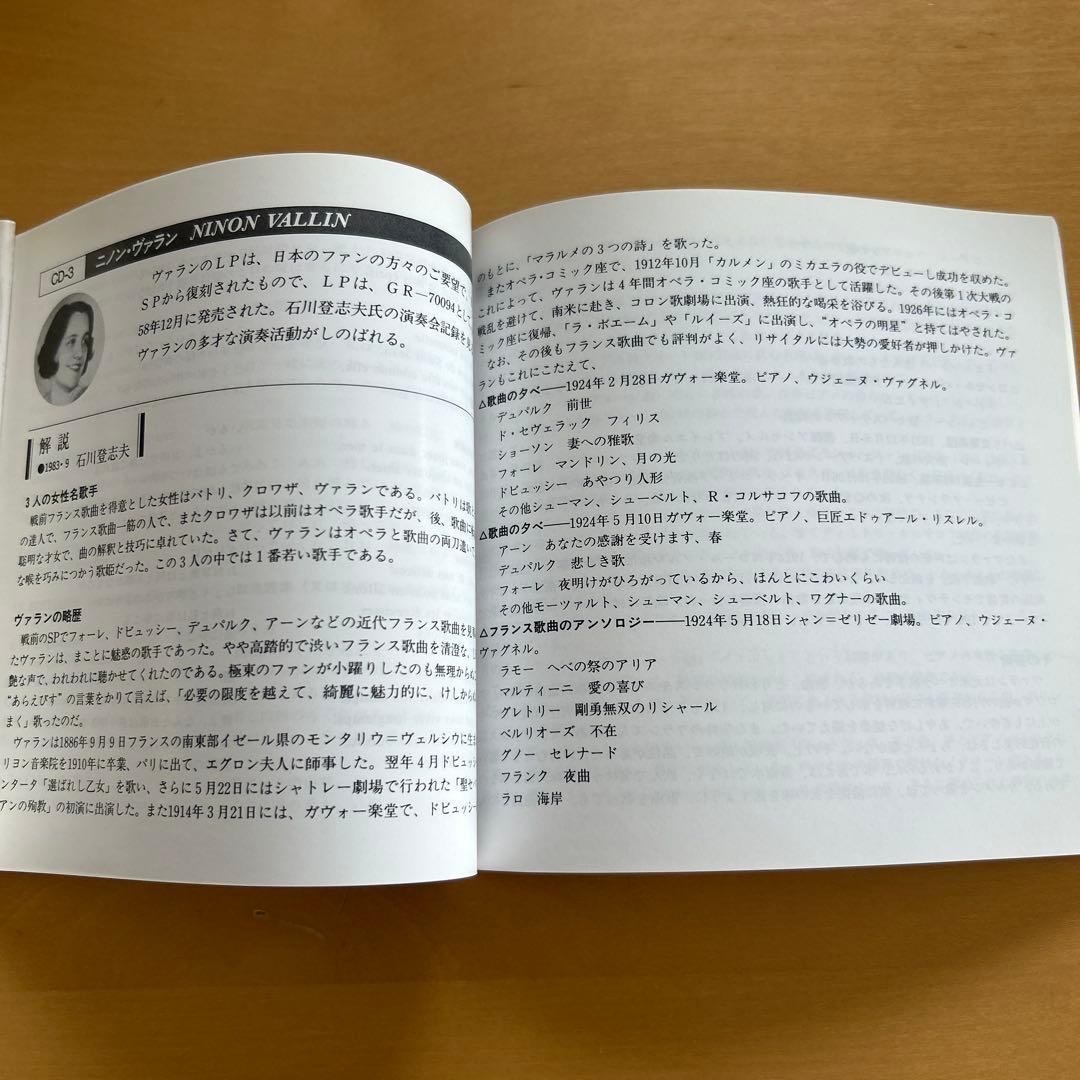 CD-3 ニノン・ヴァラン NINON VALLIN
ヴァランのLPは、日本のファンの方々のご要望で、
SPから復刻されたもので、LPは、GR—70094とし
58年12月に発売された。石川登志夫氏の演奏会記録を
ヴァランの多才な演奏活動がしのばれる。
解説
●1983・9 石川登志夫
3人の女性名歌手
戦前フランス歌曲を得意とした女性はバトリ、クロワザ、ヴァランである。バトリは歌
の達人で、フランス歌曲一筋の人で、またクロワザは以前はオペラ歌手だが、後、歌曲に
聡明な才女で、曲の解釈と技巧に卓れていた。さて、ヴァランはオペラと歌曲の両刀遣い
な喉を巧みにつかう歌姫だった。この3人の中では1番若い歌手である。
ヴァランの略歴
戦前のSPでフォーレ、ドビュッシー、デュパルク、アーンなどの近代フランス歌曲を
たヴァランは、まことに魅惑の歌手であった。やや高踏的で渋いフランス歌曲を清澄な、
艶な声で、われわれに聴かせてくれたのである。極東のファンが小躍りしたのも無理から
“あらえびす”の言葉をかりて言えば、「必要の限度を越えて、綺麗に魅力的に、けしから
まく」歌ったのだ。
ヴァランは1886年9月9日フランスの南東部イゼール県のモンタリウ=ヴェルシウに生
リヨン音楽院を1910年に卒業、パリに出て、エグロン夫人に師事した。翌年4月ドビュッ
ンタータ「選ばれし乙女」を歌い、さらに5月22日にはシャトレー劇場で行われた「聖セ
アンの殉教」の初演に出演した。また1914年3月21日には、ガヴォー楽堂で、ドビュッシー
のもとに、「マラルメの3つの詩」を歌った。
またオペラ・コミック座で、1912年10月「カルメン」のミカエラの役でデビューし成功を収めた。
これによって、ヴァランは4年間オペラ・コミック座の歌手として活躍した。その後第1次大戦の
戦乱を避けて、南米に赴き、コロン歌劇場に出演、熱狂的な喝采を浴びる。1926年にはオペラ・コ
ミック座に復帰、「ラ・ボエーム」や「ルイーズ」に出演し、“オペラの明星”と持てはやされた。
なお、その後もフランス歌曲でも評判がよく、リサイタルには大勢の愛好者が押しかけた。ヴァ
ランもこれにこたえて、
△歌曲の夕べ——1924年2月28日ガヴォー楽堂。ピアノ、ウジェーヌ・ヴァグネル。
デュパルク 前世
ド・セヴェラック フィリス
ショーソン 妻への雅歌
フォーレ マンドリン、月の光
ドビュッシー あやつり人形
その他シューマン、シューベルト、R・コルサコフの歌曲。
△歌曲の夕べ——1924年5月10日ガヴォー楽堂。ピアノ、巨匠エドゥアール・リスレル。
アーン あなたの感謝を受けます、春
デュパルク 悲しき歌
フォーレ 夜明けがひろがっているから、ほんとにこわいくらい
その他モーツァルト、シューマン、シューベルト、ワグナーの歌曲。
△フランス歌曲のアンソロジー——1924年5月18日シャン=ゼリゼー劇場。ピアノ、ウジェーヌ・
ヴァグネル。
ラモー ヘベの祭のアリア
マルティーニ 愛の喜び
グレトリー 剛勇無双のリシャール
ベルリオーズ 不在
グノー セレナード
フランク 夜曲
ラロ 海岸